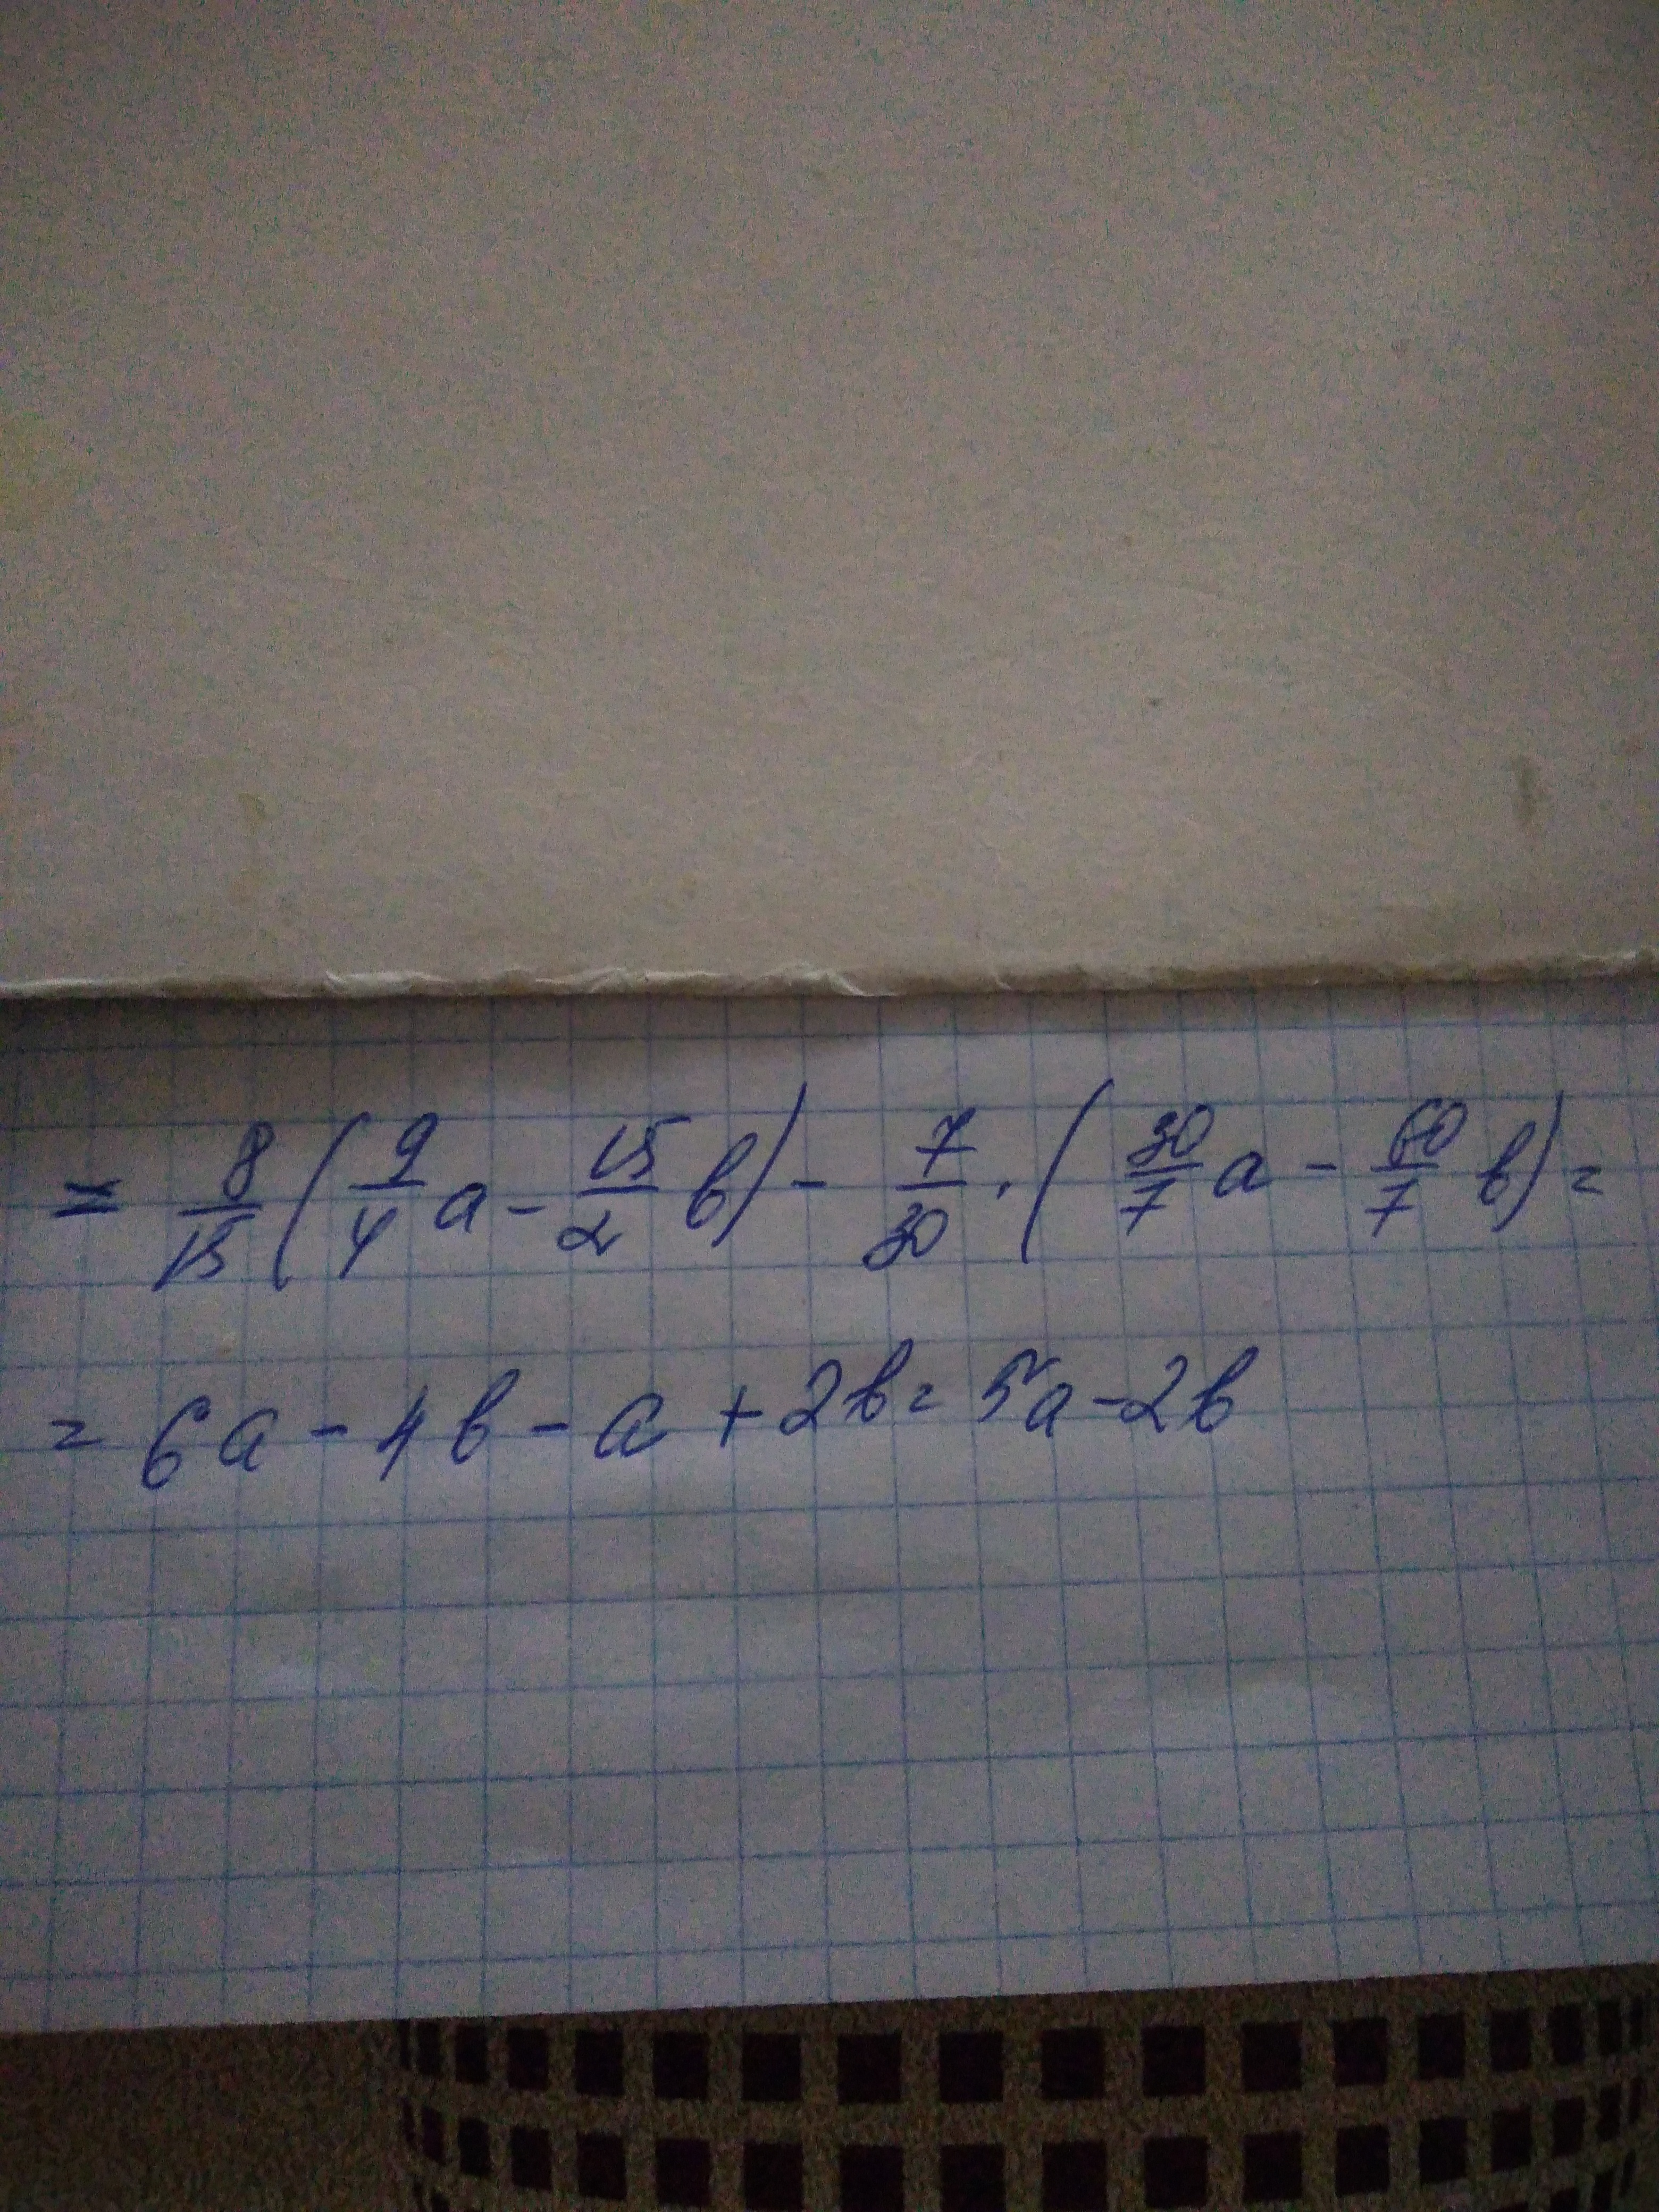 = 8/15 (9/4 a - 15/2 b) - 7/30 · (30/7 a - 60/7 b) =
= 6a - 4b - a + 2b = 5a - 2b